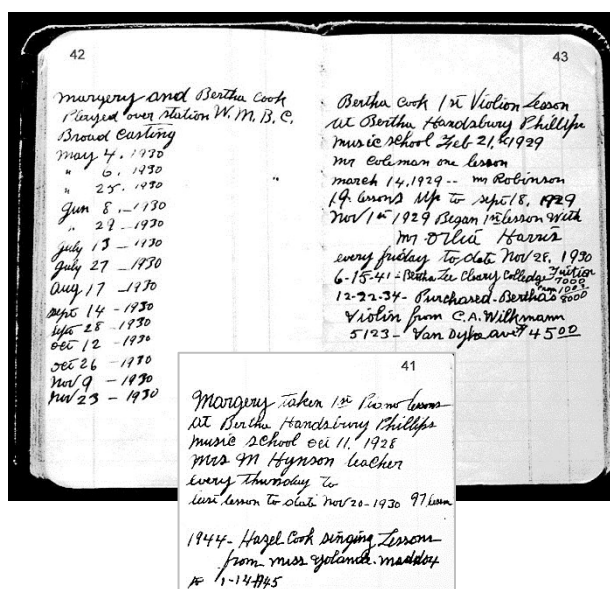 42
Margery and Bertha Cook
Played over station W.M.B.C.
Broad Casting
May 4, 1930
" 6, 1930
" 25, 1930
Jun 8, -1930
" 29 -1930
July 13 -1930
July 27 -1930
Aug 17 -1930
Sept 14 -1930
Sept 28 -1930
Oct 12 -1930
Oct 26 -1930
Nov 9 -1930
Nov 23 -1930
43
Bertha Cook 1st Violion Lesson
at Bertha Handsbury Phillips
music school Feb 21, 1929
mr Coleman one lesson
march 14, 1929 -- mr Robinson
19 lessons up to sept 18, 1929
Nov 1st 1929 Began 1st lesson with
mr Harris
every friday to date Nov 28, 1930
6-15-41 - Bertha Lee Cleary Colledge Tuition
12-22-34 - Purchased Berthas
Violin from C.A. Wilhmann
5123 - Van Dyke ave # 45 00
41
Margery taken 1st Piano lessons
at Bertha Handsbury Phillips
music school Oct 11, 1928
Mrs M Hynson teacher
every thursday to
last lesson to date Nov 20-1930 97 lesson
1944 - Hazel Cook singing Lessons
from miss Yolanda Maddox
to 1-14-45